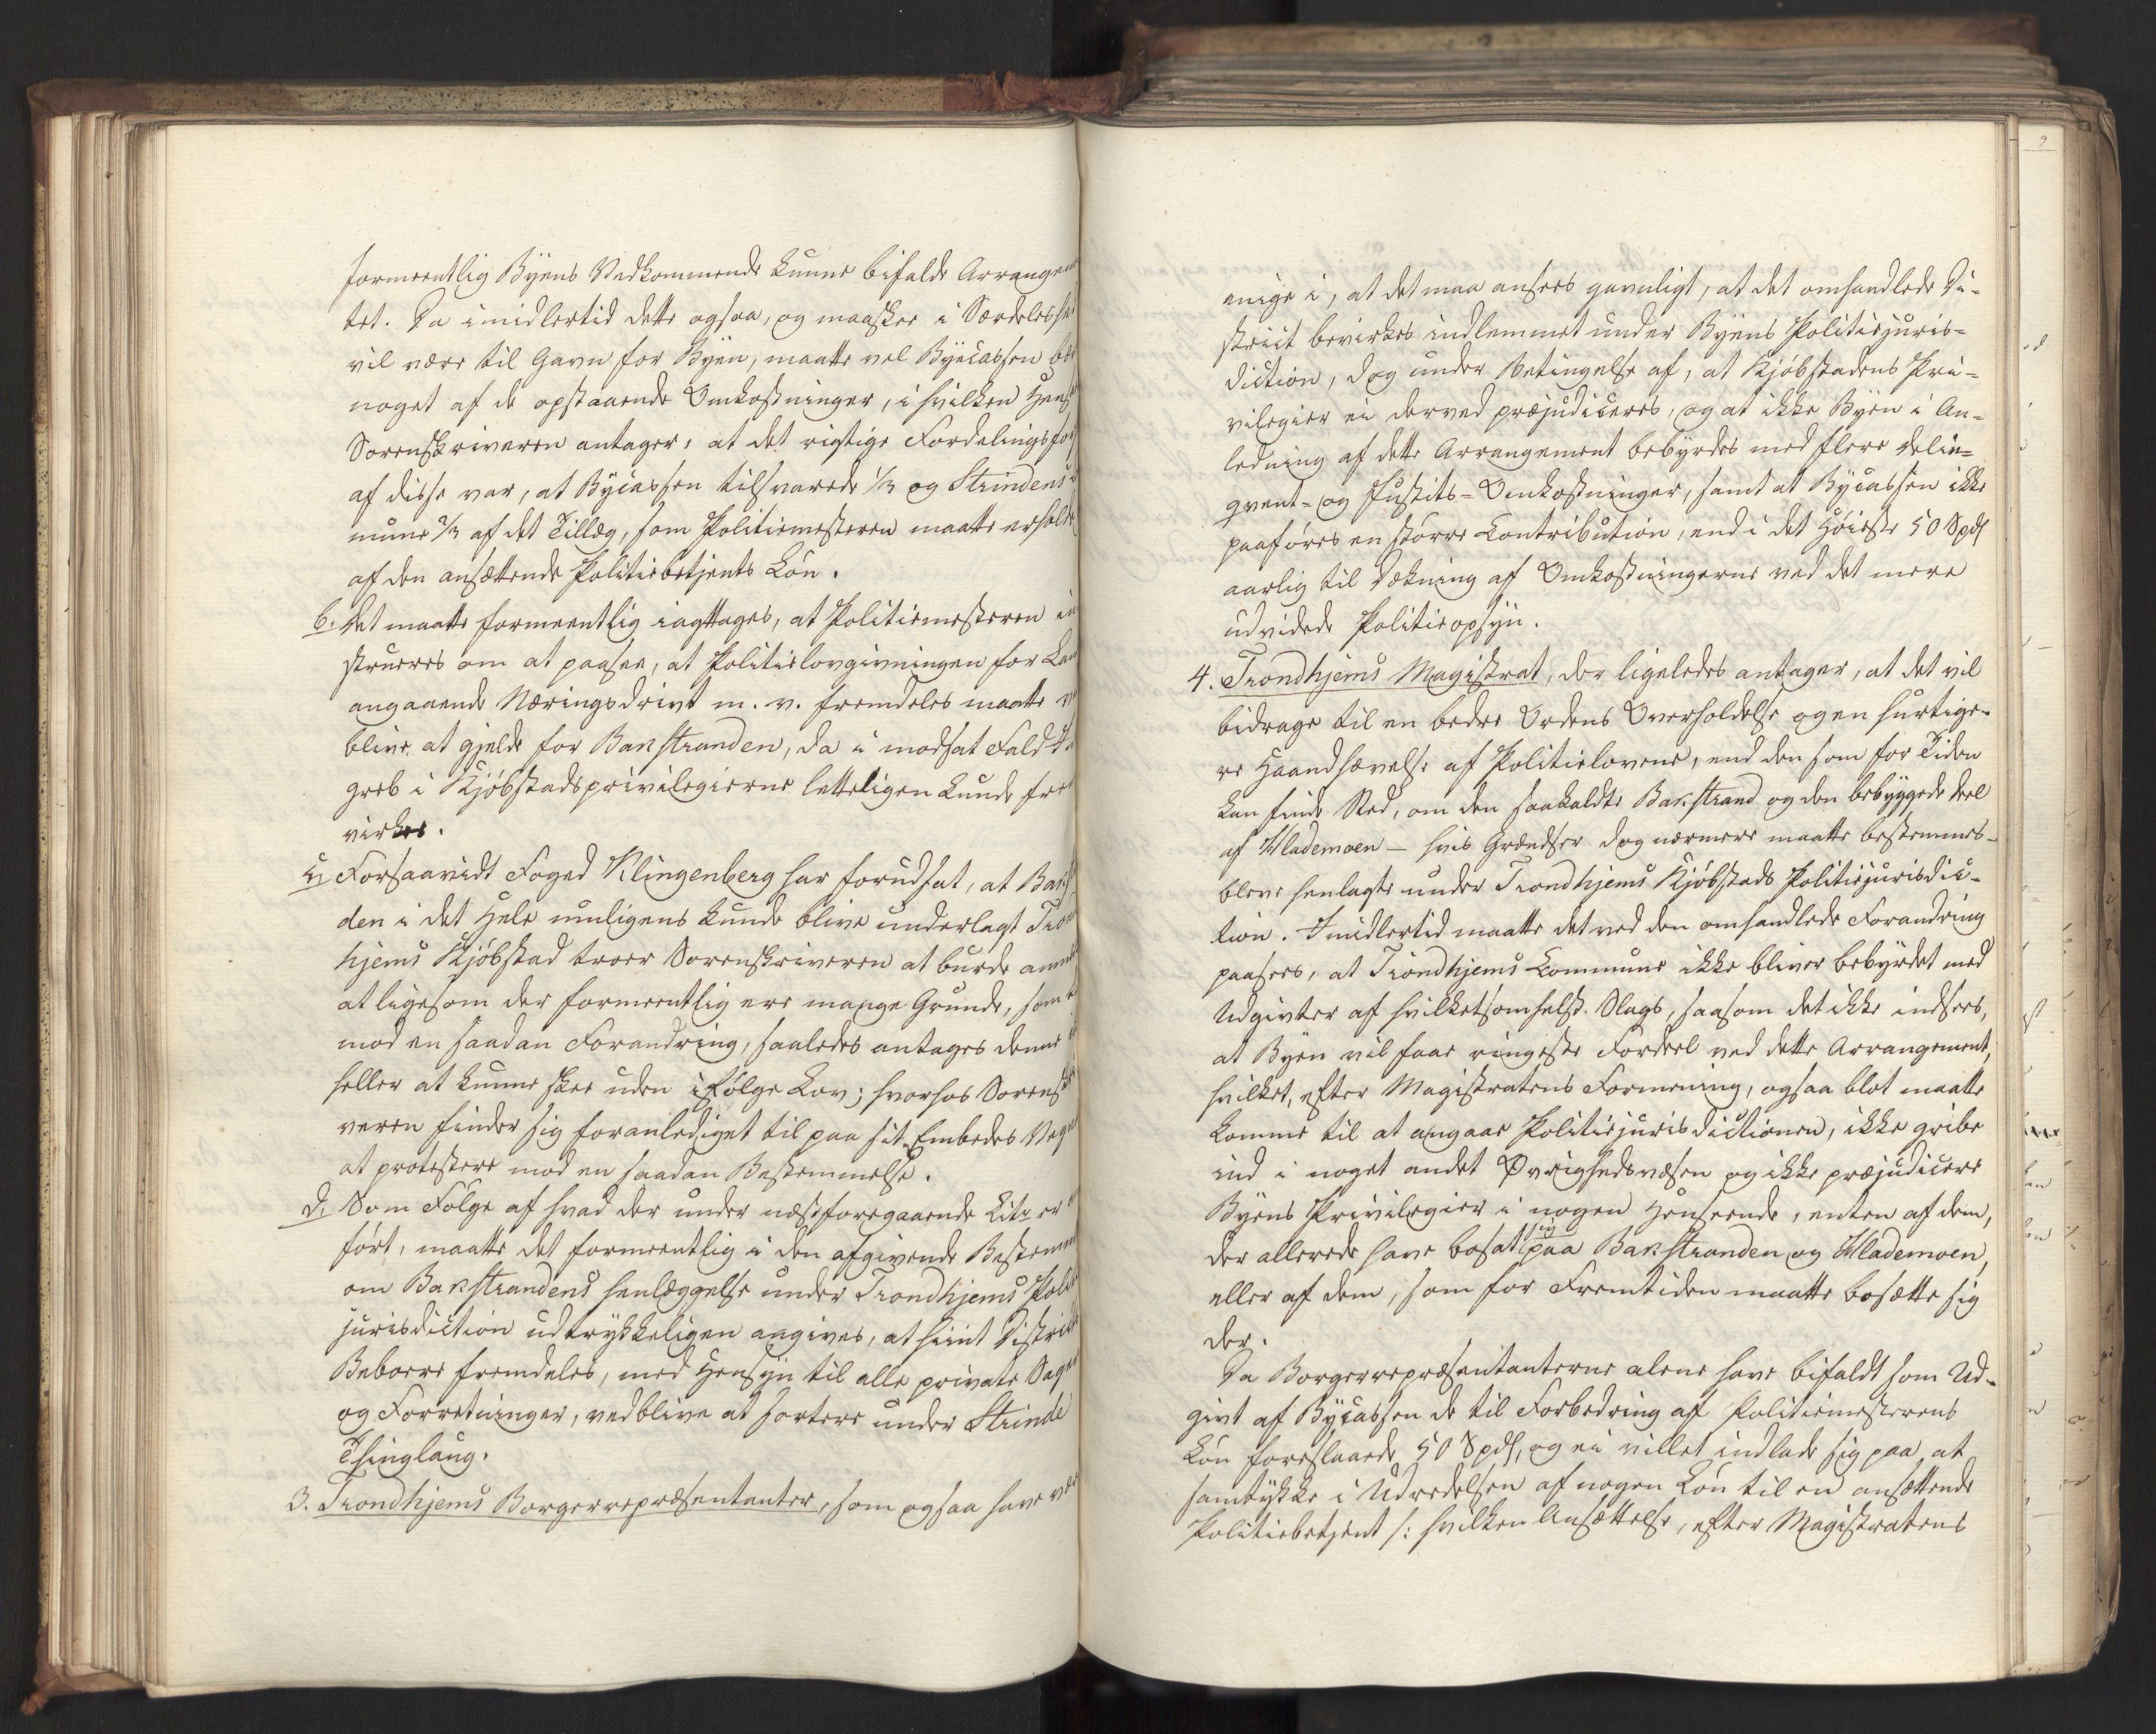 formeentlig Byens Vedkommende kunne bifalde Arrangem
tet. Da imidlertid dette ogsaa, og maaskee i Særdeleshe
vil være til Gavn for Byen, maatte vel Byecassen bære
noget af de opstaaende Omkostninger, i hvilken Hense
Sorenskriveren antager, at det rigtige Fordelingsfor
af disse var, at Bycassen tilsvarede 1/3 og Strindens
mune 2/3 af det Tillæg, som Politiemesteren maatte erholde
af den ansættende Politiebetjents Løn.
b. Det maatte formeentlig iagttages, at Politiemesteren in
strueres om at paasee, at Politielovgivningen for Lan
angaaende Næringsdrivt m. v. fremdeles maatte ve
blive at gjelde for Bakstranden, da i modsat Fald
greb i Kjøbstadsprivilegierne letteligen kunde frem
virkes.
c, Forsaavidt Foged Klingenberg har forudsat, at Bakst
den i det Hele muligens kunde blive underlagt Tron
hjems Kjøbstad troer Sorenskriveren at burde anmæ
at ligesom der formeentlig ere mange Grunde, som
mod en saadan Forandring, saaledes antages denne
heller at kunne skee uden ifølge Lov; hvorhos Sorensk
veren finder sig foranlediget til paa sit Embedes Vegne
at protestere mod en saadan Bestemmelse.
d, Som Følge af hvad der under næstforegaaende Litr er
ført, maatte det formeentlig i den afgivende Bestemm
om Bakstrandens henlæggelse under Trondhjems Politi
jurisdiction udtrykkeligen angives, at hiint Distrikts
Beboere fremdeles, med Hensyn til alle private Sager
og Forretninger, vedblive at sortere under Strinde
Thinglaug.
3. Trondhjems Borgerrepræsentanter, som ogsaa have vær
enige i, at det maa ansees gavnligt, at det omhandlede Di-
strict bevirkes indlemmet under Byens Politiejuris-
diction, dog under Betingelse af, at Kjøbstadens Pri-
vilegier ei derved præjudiceres, og at ikke Byen i An-
ledning af dette Arrangement bebyrdes med flere Delin-
qvent- og Justits-Omkostninger, samt at Bycassen ikke
paaføres en større Contribution, end i det Høieste 50 Spd
aarlig til Dækning af Omkostningerne ved det mere
udvidede Politieopsyn.
4. Trondhjems Magistrat, der ligeledes antager, at det vil
bidrage til en bedre Ordens Overholdelse og en hurtige-
re Haandhævelse af Politielovene, end den som for Tiden
kan finde Sted, om den saakaldte Bakstrand og den bebyggede Deel
af Hlademoen – hvis Grændser dog nærmere maatte bestemmes –
bleve henlagte under Trondhjems Kjøbstads Politiejurisdic-
tion. Imidlertid maatte det ved den omhandlede Forandring
paasees, at Trondhjems Commune ikke bliver bebyrdet med
Udgivter af hvilketsomhelst Slags, saasom det ikke indsees,
at Byen vil faae ringeste Fordeel ved dette Arrangement,
hvilket, efter Magistratens Formening, ogsaa blot maatte
komme til at angaae Politiejurisdictionen, ikke gribe
ind i noget andet Øvrighedsvæsen og ikke præjudicere
Byens Privilegier i nogen Henseende, enten af dem,
der allerede have bosat sig paa Bakstranden og Hlademoen,
eller af dem, som for Fremtiden maatte bosætte sig
der.
Da Borgerrepræsentanterne alene have bifaldt som Ud-
givt af Bycassen de til Forbedring af Politiemesterens
Løn foreslaaede 50 Spd, og ei villet indlade sig paa at
samtykke i Udredelsen af nogen Løn til en ansættende
Politiebetjent /: hvilken Ansættelse, efter Magistratens